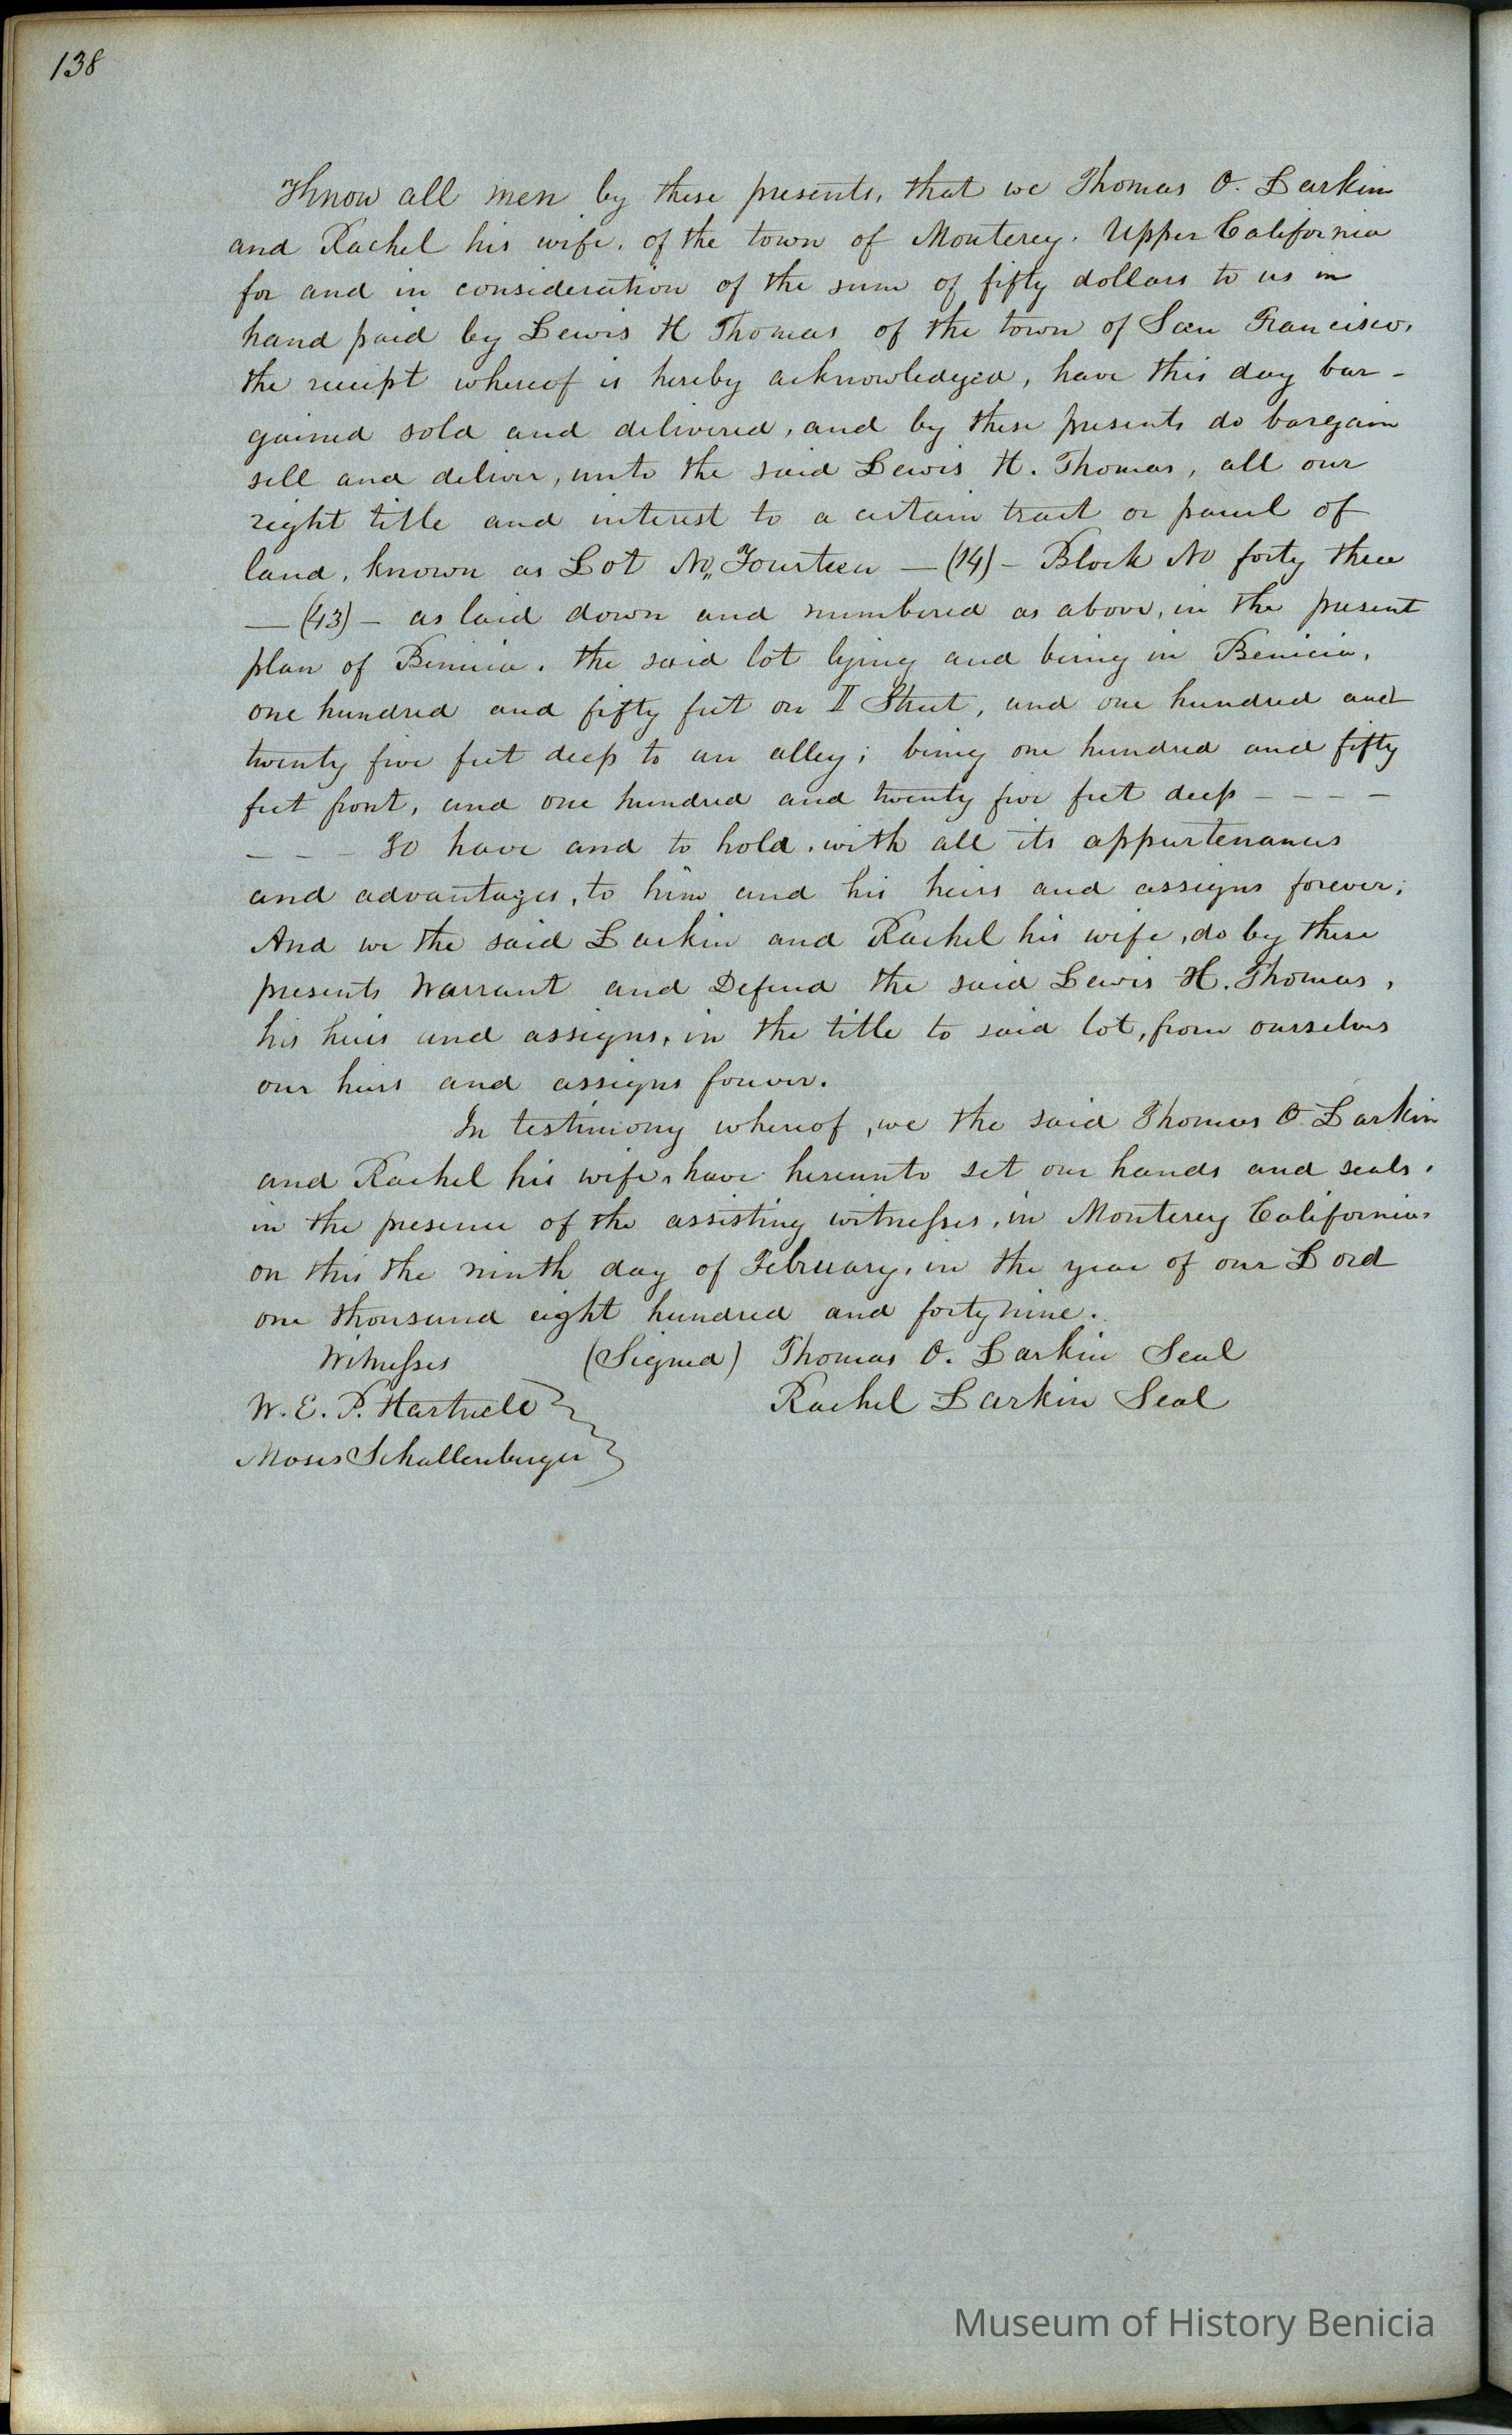 138
Know all men by these presents, that we Thomas O. Larkin
and Rachel his wife, of the town of Monterey, Upper California
for and in consideration of the sum of fifty dollars to us in
hand paid by Lewis H Thomas of the town of San Francisco,
the receipt whereof is hereby acknowledged, have this day bar-
gained sold and delivered, and by these presents do bargain
sell and deliver, unto the said Lewis H. Thomas, all our
right title and interest to a certain tract or parcel of
land, known as Lot No,, Fourteen — (14) — Block No forty three
— (43) — as laid down and numbered as above, in the present
plan of Benicia. the said lot lying and being in Benicia,
one hundred and fifty feet on II Street, and one hundred and
twenty five feet deep to an alley; being one hundred and fifty
feet front, and one hundred and twenty five feet deep - - - -
- - - To have and to hold, with all its appurtenances
and advantages, to him and his heirs and assigns forever;
And we the said Larkin and Rachel his wife, do by these
presents Warrant and Defend the said Lewis H. Thomas,
his heirs and assigns, in the title to said lot, from ourselves
our heirs and assigns forever.
In testimony whereof, we the said Thomas O. Larkin
and Rachel his wife, have hereunto set our hands and seals,
in the presence of the assisting witnesses, in Monterey California,
on this the ninth day of February, in the year of our Lord
one thousand eight hundred and forty nine.
Witnesses (Signed) Thomas O. Larkin Seal
W. E. P. Hartnell Rachel Larkin Seal
Moses Schallenberger
Museum of History Benicia